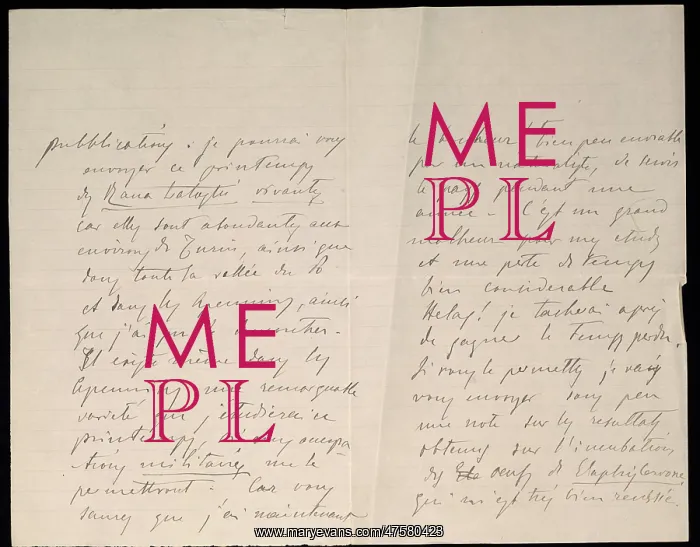 pubblications : je pourrai vous
envoyer ce printemps
des Rana Latastii vivants
car elles sont abondantes aux
environs de Turin, ainsi que
dans toute la vallée du Pô
et dans les Apennins, ainsi
que j'ai pu le
Il existe même dans les
Apennins une remarquable
varieté que j'étudierai ce
printemps, si mes occupa
tions militaires me le
permettront. Car vous
saurez que j'ai maintenant
le bien peu enviable
par un naturaliste, de servir
le pays pendant une
année - C'est un grand
malheur pour mes etudes
et une perte de temps
bien considerable
Helas! je tacherai après
de gagner le temps perdu.
Si vous le permettez je vais
vous envoyer sous peu
une note sur les resultats
obtenus sur l'incubation
des oeufs de Elaphis
qui m'est très bien reussie.
ME
PL
ME
PL
www.maryevans.com/47580423